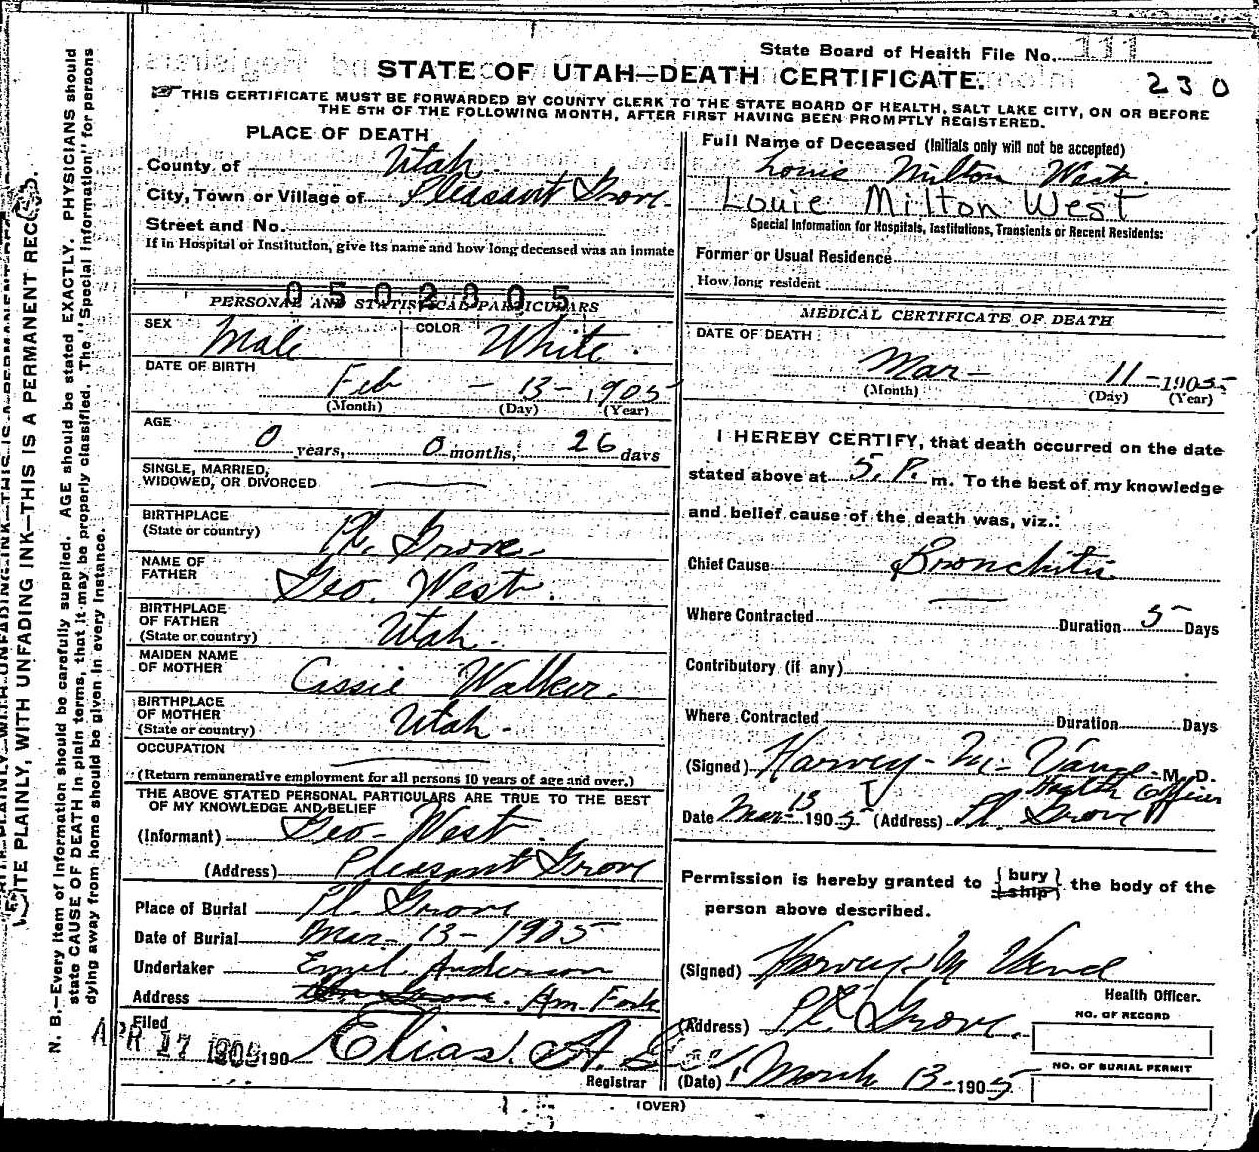 State Board of Health File No. 111
STATE OF UTAH—DEATH CERTIFICATE.
230
THIS CERTIFICATE MUST BE FORWARDED BY COUNTY CLERK TO THE STATE BOARD OF HEALTH, SALT LAKE CITY, ON OR BEFORE
THE 5TH OF THE FOLLOWING MONTH, AFTER FIRST HAVING BEEN PROMPTLY REGISTERED.
PLACE OF DEATH
County of Utah
City, Town or Village of Pleasant Grove.
Street and No.
If in Hospital or Institution, give its name and how long deceased was an inmate
0502305
PERSONAL AND STATISTICAL PARTICULARS
SEX Male COLOR White.
DATE OF BIRTH
Feb - 13 - 1905
(Month) (Day) (Year)
AGE
0 years, 0 months, 26 days
SINGLE, MARRIED,
WIDOWED, OR DIVORCED
BIRTHPLACE
(State or country) Pl. Grove.
NAME OF
FATHER Geo. West.
BIRTHPLACE
OF FATHER
(State or country) Utah.
MAIDEN NAME
OF MOTHER Cassie Walker.
BIRTHPLACE
OF MOTHER
(State or country) Utah.
OCCUPATION
(Return remunerative employment for all persons 10 years of age and over.)
THE ABOVE STATED PERSONAL PARTICULARS ARE TRUE TO THE BEST
OF MY KNOWLEDGE AND BELIEF
(Informant) Geo. West.
(Address) Pleasant Grove
Place of Burial Pl. Grove
Date of Burial Mar- 13 - 1905
Undertaker Emil Anderson
Address Am. Fork
Filed
APR 17 1905 190 Elias A.
Registrar
Full Name of Deceased (Initials only will not be accepted)
Louie Milton West.
Louie Milton West
Special Information for Hospitals, Institutions, Transients or Recent Residents:
Former or Usual Residence
How long resident
MEDICAL CERTIFICATE OF DEATH
DATE OF DEATH:
Mar- 11 - 1905
(Month) (Day) (Year)
I HEREBY CERTIFY, that death occurred on the date
stated above at 5. P. m. To the best of my knowledge
and belief cause of the death was, viz.:
Chief Cause Bronchitis
Where Contracted Duration 5 Days
Contributory (if any)
Where Contracted Duration Days
(Signed) Harvey M. Vance M. D.
Health Officer
Date Mar- 13 1905 (Address) Pl. Grove
Permission is hereby granted to {bury ship} the body of the
person above described.
(Signed) Harvey M Vance
Health Officer.
(Address) Pl. Grove.
NO. OF RECORD
NO. OF BURIAL PERMIT
(Date) March 13 - 1905
(OVER)
WRITE PLAINLY, WITH UNFADING INK—THIS IS A PERMANENT RECORD.
N. B.—Every item of Information should be carefully supplied. AGE should be stated EXACTLY. PHYSICIANS should
state CAUSE OF DEATH in plain terms, that it may be properly classified. The "Special Information" for persons
dying away from home should be given in every instance.